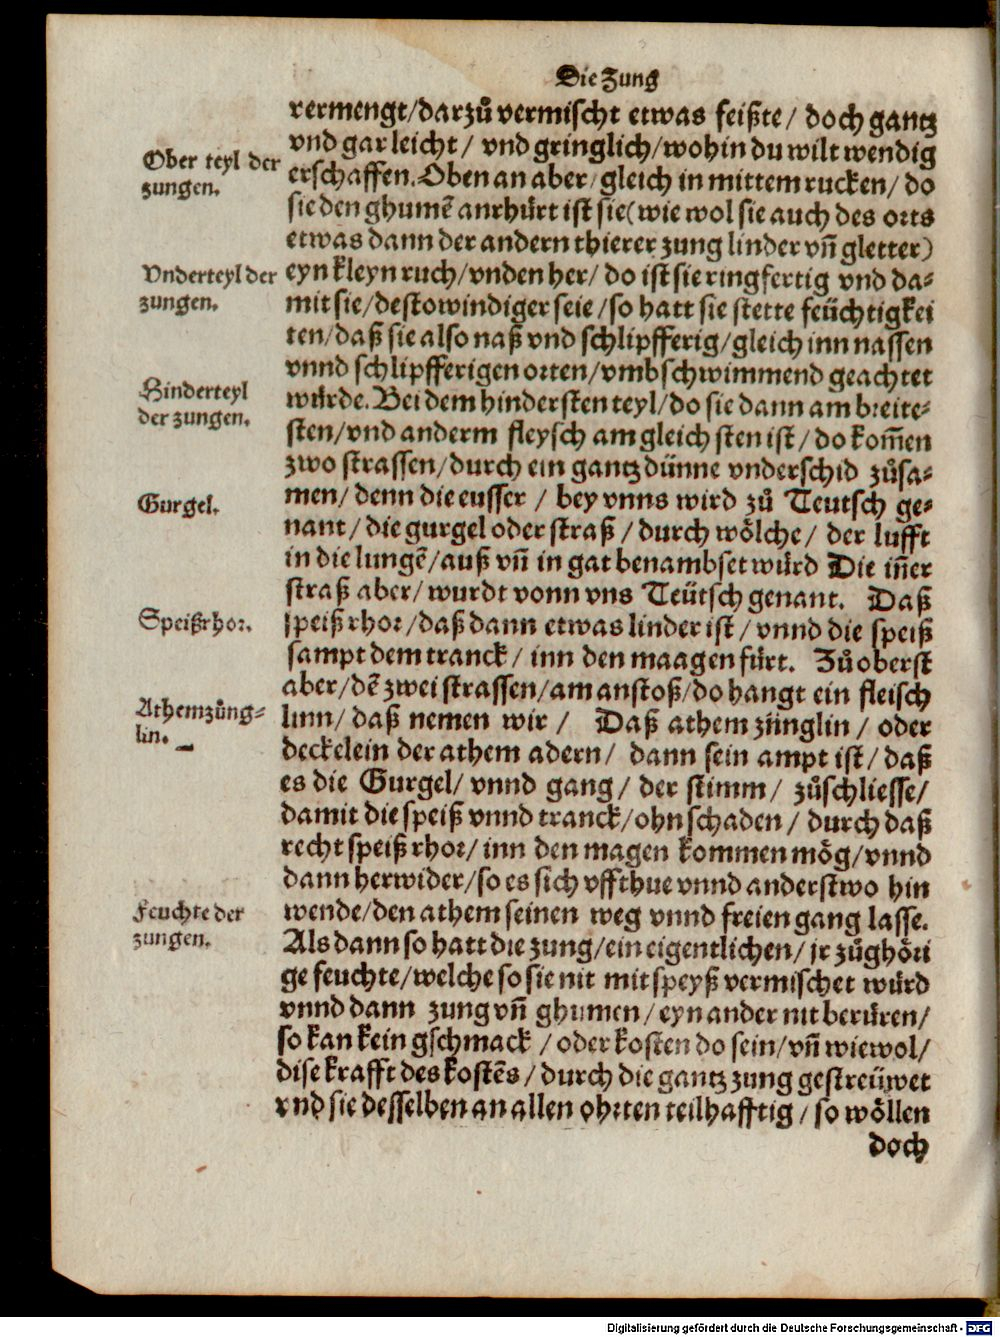 Die Zung
vermengt/darzů vermischt etwas feißte/ doch gantz
vnd gar leicht/ vnd gringlich/wohin du wilt wendig
Ober teyl der
zungen.
erschaffen. Oben an aber/gleich in mittem rucken/ do
sie den ghumẽ anrhürt ist sie(wie wol sie auch des orts
etwas dann der andern thierer zung linder vñ gletter)
Vnderteyl der
zungen.
eyn kleyn ruch/vnden her/ do ist sie ringfertig vnd da-
mit sie/destowindiger seie/so hatt sie stette feüchtigkei
ten/daß sie also naß vnd schlipfferig/gleich inn nassen
vnnd schlipfferigen orten/vmbschwimmend geachtet
Hinderteyl
der zungen.
würde. Bei dem hindersten teyl/do sie dann am breite-
sten/vnd anderm fleysch am gleich sten ist/do kom̃en
zwo strassen/durch ein gantz dünne vnderschid zůsa-
Gurgel.
men/ denn die eusser / bey vnns wird zů Teutsch ge-
nant/die gurgel oder straß/durch wölche/ der lufft
in die lungẽ/auß vñ in gat benambset würd Die iñer
straß aber/wurdt vonn vns Teütsch genant. Daß
Speißrhor.
speiß rhor/daß dann etwas linder ist/vnnd die speiß
sampt dem tranck/ inn den maagen fürt. Zů oberst
aber/dẽ zwei strassen/am anstoß/do hangt ein fleisch
Athemzüng-
lin.
linn/ daß nemen wir / Daß athem zünglin / oder
deckelein der athem adern/ dann sein ampt ist/ daß
es die Gurgel/ vnnd gang/ der stimm/ zůschliesse/
damit die speiß vnnd tranck/ohn schaden/ durch daß
recht speiß rhor/inn den magen kommen mög/vnnd
dann herwider/so es sich vffthue vnnd anderstwo hin
Feuchte der
zungen.
wende/den athem seinen weg vnnd freien gang lasse.
Als dann so hatt die zung/ein eigentlichen/jr zůghöri
ge feuchte/welche so sie nit mit speyß vermischet würd
vnnd dann zung vñ ghumen/eyn ander nit berüren/
so kan kein gschmack /oder kosten do sein/vñ wiewol/
dise krafft des kostẽs/durch die gantz zung gestreüwet
vnd sie desselben an allen ohrten teilhafftig/so wöllen
doch
Digitalisierung gefördert durch die Deutsche Forschungsgemeinschaft - DFG